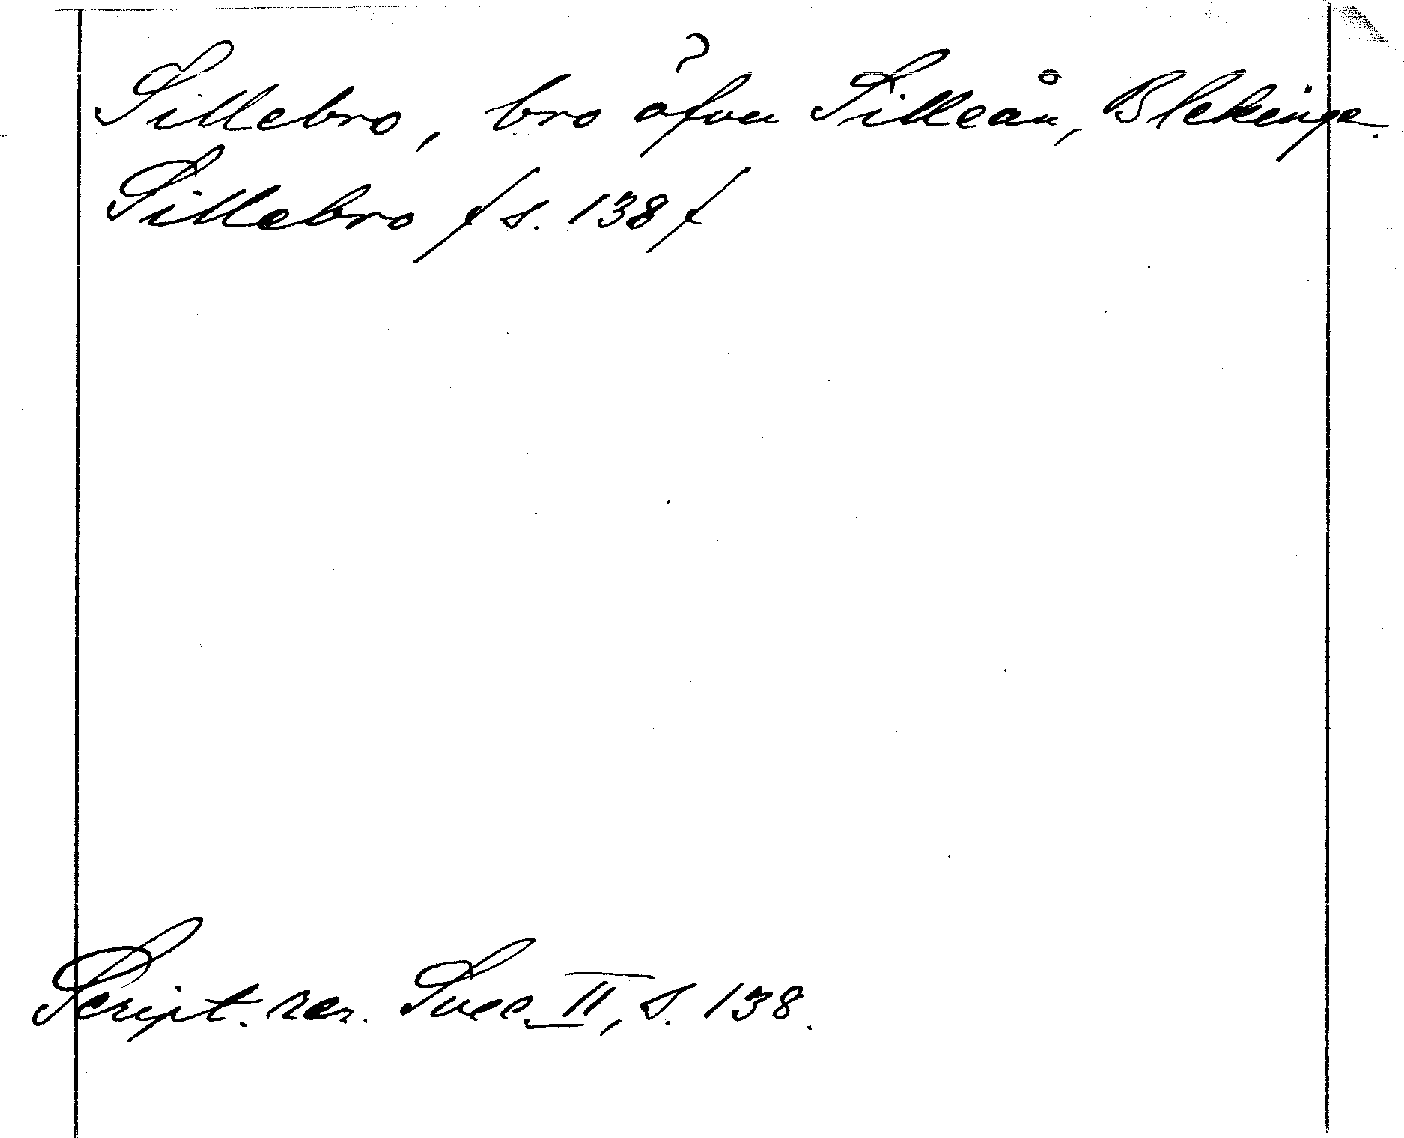 Sillebro, bro öfver Silleån, Blekinge.
Sillebro / s. 138 /
Script. rer. Svec. II, s. 138.